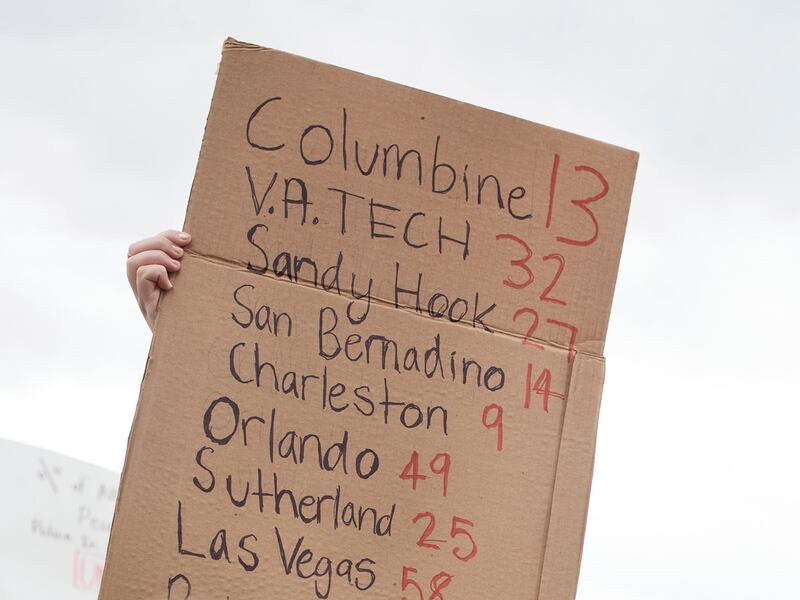 Columbine 13
V.A. TECH 32
Sandy Hook 27
San Bernadino 14
Charleston 9
Orlando 49
Sutherland 25
Las Vegas 58
% of